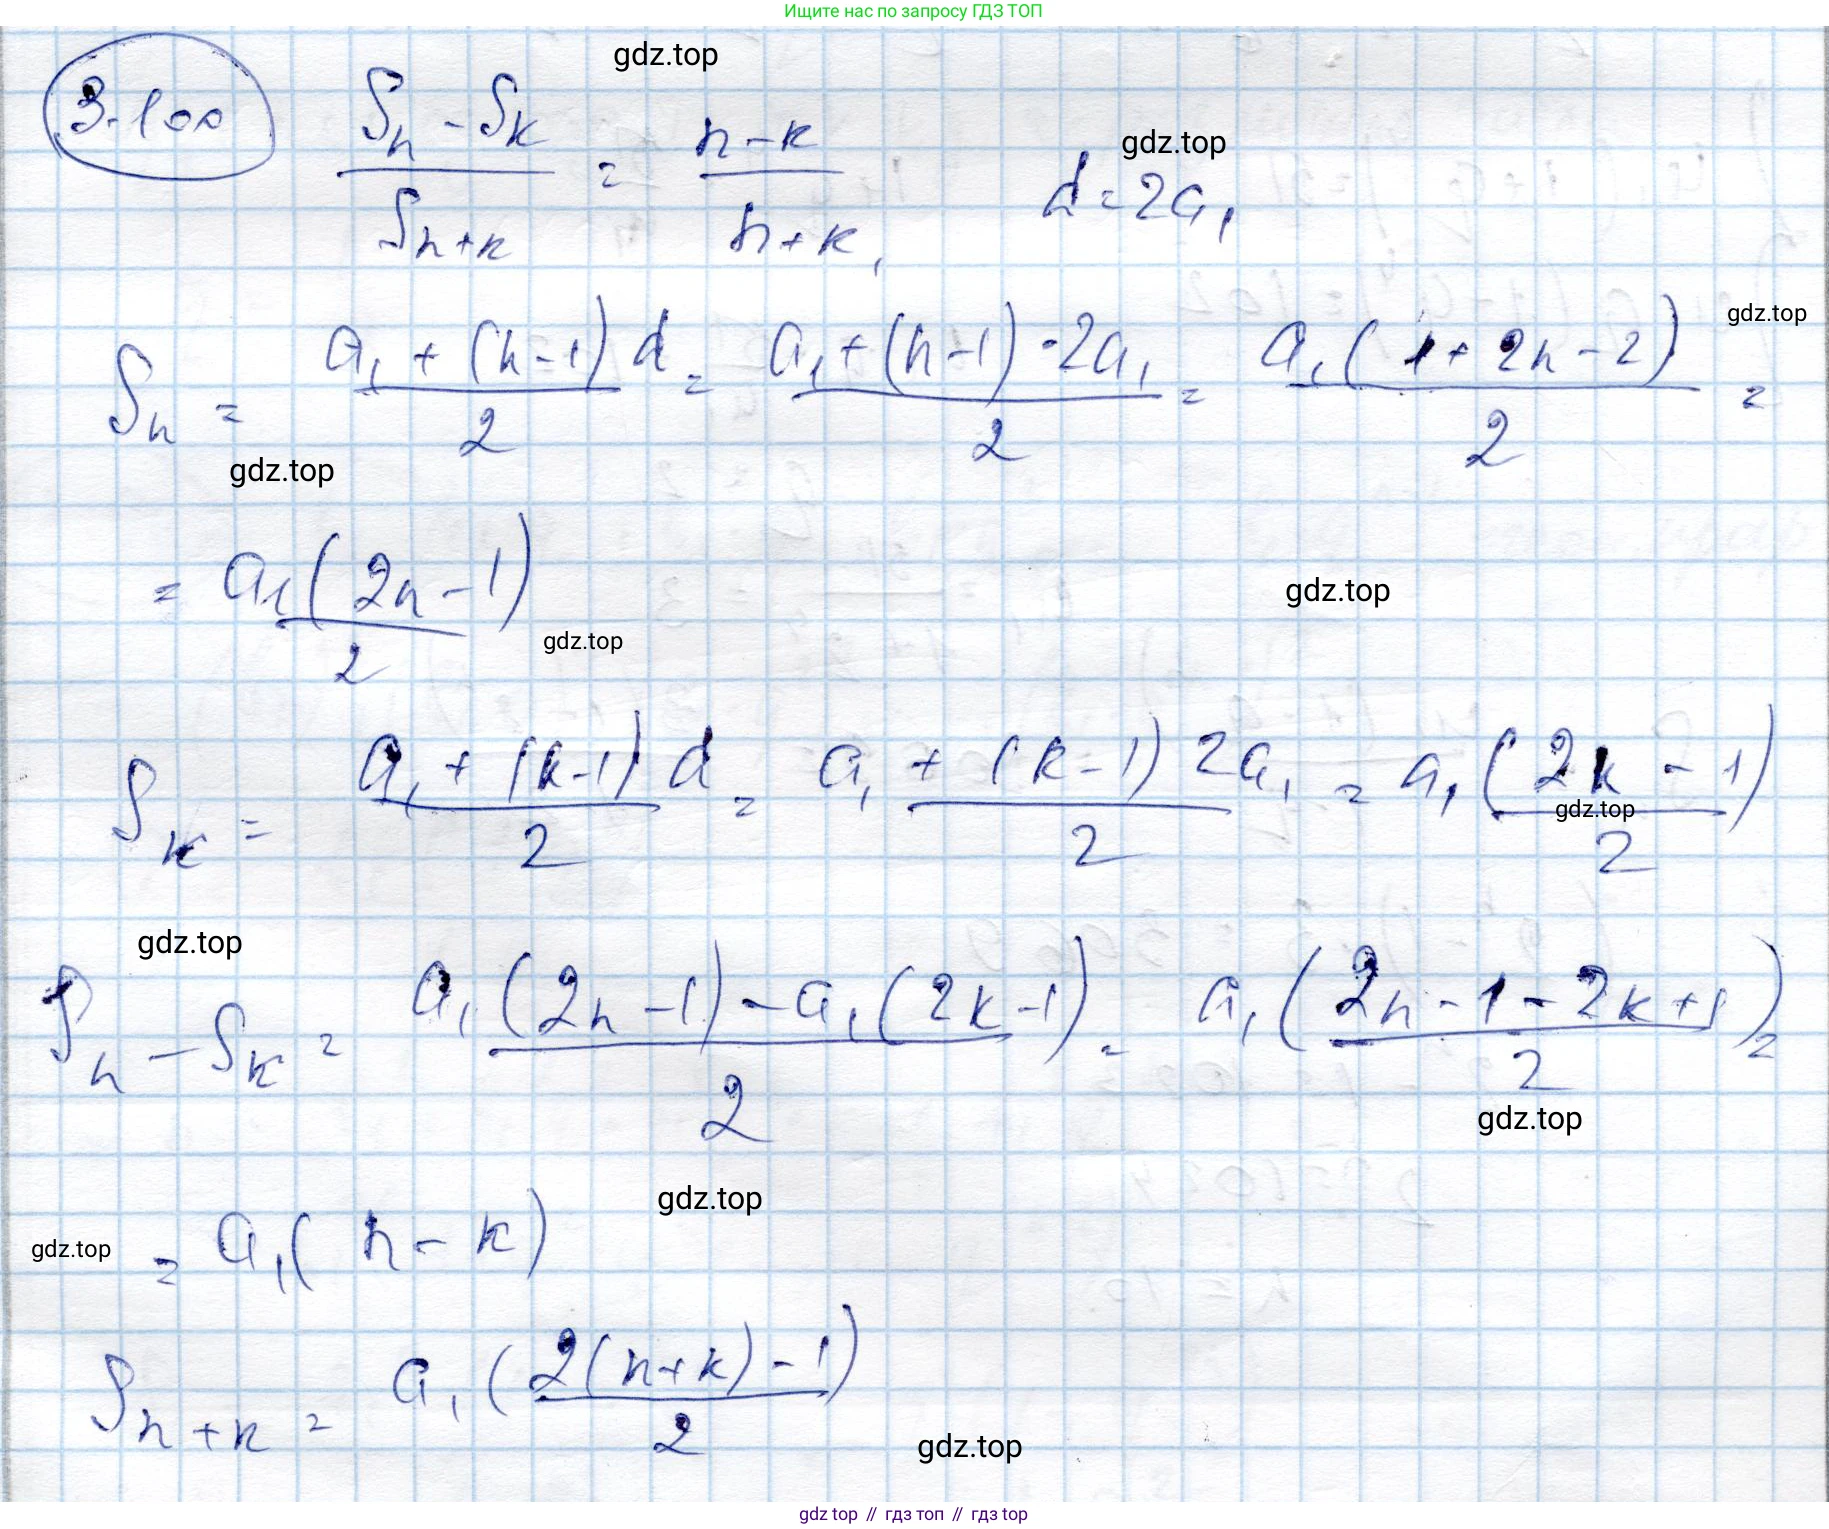 Ищите нас по запросу ГДЗ ТОП
gdz.top
3.100 (Sₙ - Sₖ)/Sₙ₊ₖ = (n-k)/(n+k), d = 2a₁
gdz.top
Sₙ = (a₁ + (n-1)d)/2 = (a₁ + (n-1)·2a₁)/2 = a₁(1+2n-2)/2 =
gdz.top
gdz.top
= a₁(2n-1)/2
gdz.top
gdz.top
Sₖ = (a₁ + (k-1)d)/2 = a₁ + (k-1)2a₁/2 = a₁(2k-1)/2
gdz.top
gdz.top
Sₙ - Sₖ = (a₁(2n-1) - a₁(2k-1))/2 = a₁(2n-1-2k+1)/2 =
gdz.top
gdz.top
gdz.top
= a₁(n-k)
Sₙ₊ₖ = a₁(2(n+k)-1)/2
gdz.top
gdz top // гдз топ // гдз top